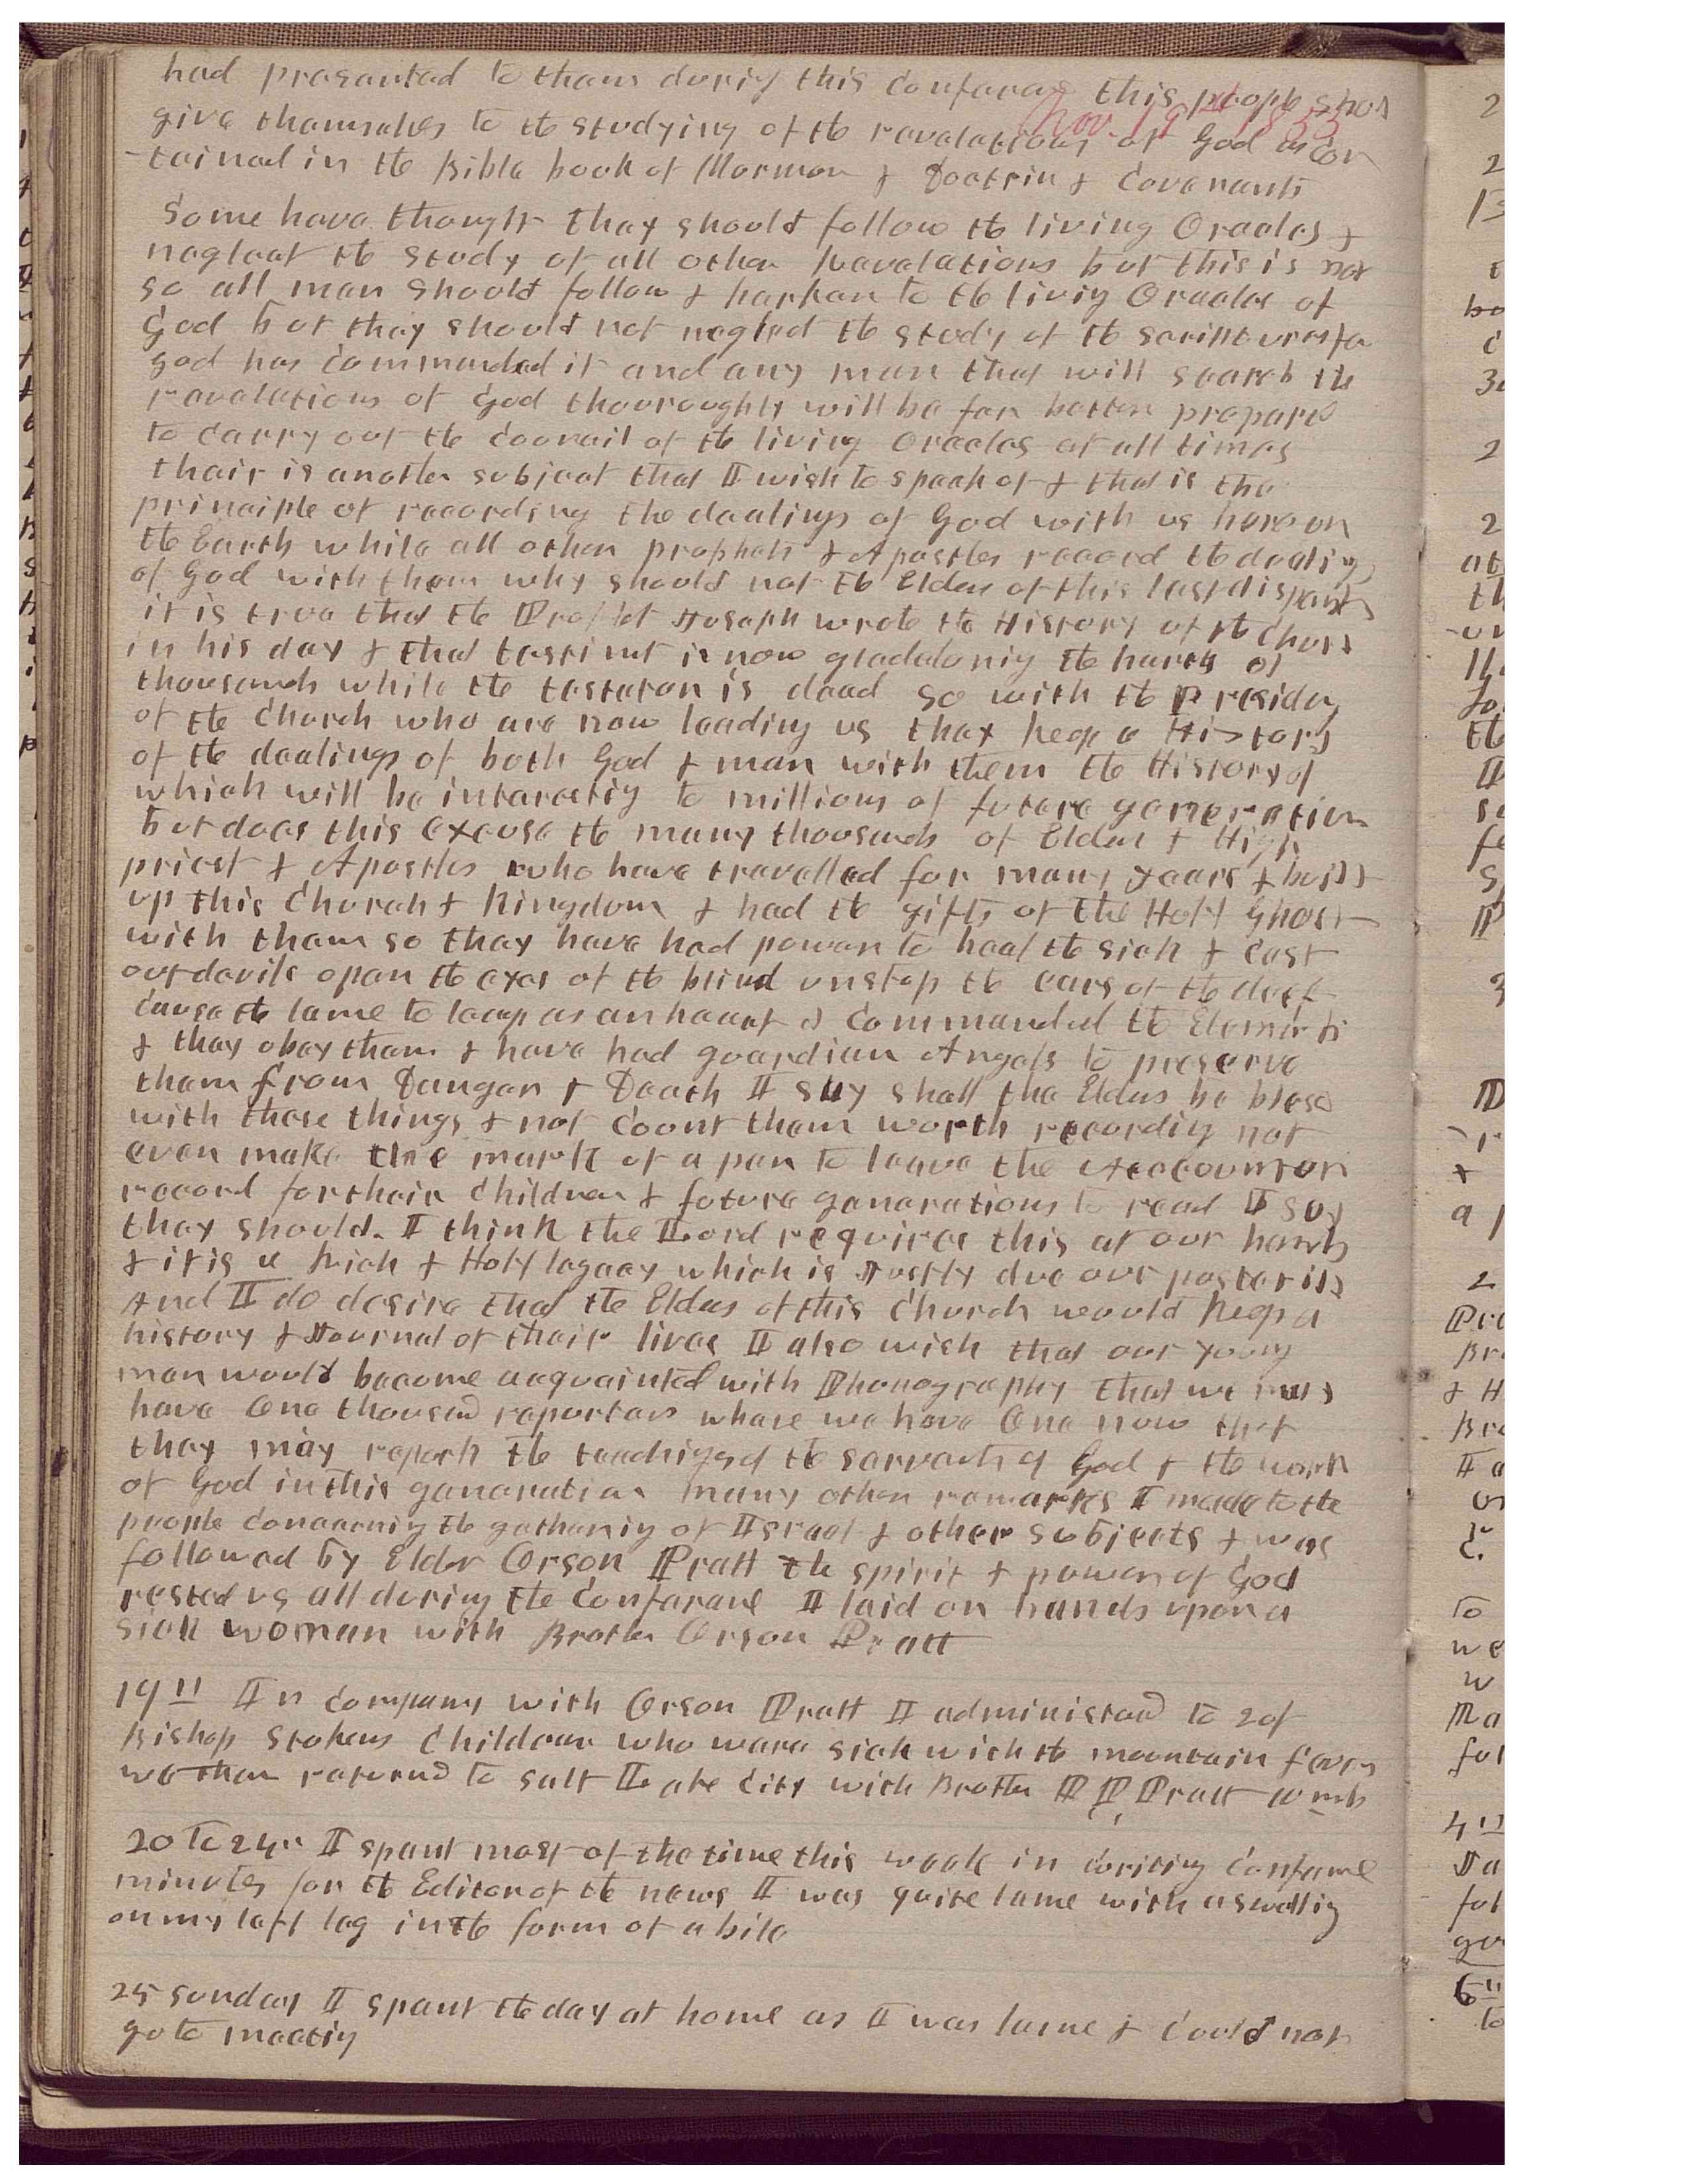 had presented to them during this conferance this people shou
Nov 19th 1855
give themselves to the studying of the revelations of God as con
-tained in the Bible book of Mormon & Doctrin & Covenants
Some have thought they should follow the living Oracles &
neglect the study of all other Revelations but this is not
so all men should follow & harken to the living Oracles of
God but they should not neglect the study of the scriptures for
god has commanded it and any man that will search the
revelations of God thouroughly will be far better prepared
to carry out the Council of the living Oracles at all times
their is another subject that I wish to speak of & that is the
principle of recording the dealings of God with us here on
the Earth while all other prophets & Apostles record the dealing
of God with them why should not the Elders of this last dispens
it is true that the Prophet Joseph wrote the History of the Church
in his day & that testimt is now gladdening the harts of
thousands while the testator is dead so with the Presidny
of the Church who are now leading us they keep a History
of the dealings of both God & man with them the History of
which will be interesting to millions of future generation
but does this excuse the many thousands of Elders & High
priest & Apostles who have travelled for many years & built
up this Church & Kingdom & had the gifts of the Holy Ghost
with them so they have had power to heal the sick & cast
out devils open the eyes of the blind unstop the ears of the deef
cause the lame to leap as an heart & commanded the Elements
& they obey them & have had guardian Angels to preserve
them from Danger & Death I say shall the Elders be blessd
with these things & not count them worth recording not
even make the mark of a pen to leave the Account on
record for their Children & future generations to read I say
they should. I think the Lord requires this at our hands
& it is a Rich & Holy legacy which is Justly due our posterity
And I do desire that the Elders of this Church would keep a
history & Journal of their lives I also wish that our young
men would become acquainted with Phonography that we may
have One thousand reporters whare we have One now that
they may report the teachings of the servants of God & the work
of God in this generation many other remarks I made to the
people concerning the gathering of Israel & other subjects & was
followed by Elder Orson Pratt the spirit & power of God
rested us all during the Conferance I laid on hands upon a
sick woman with Brother Orson Pratt
19th In company with Orson Pratt I administed to 2 of
Bishop Stokers Children who ware sick with the mountain fever
we then returned to Salt Lake City with Brother P P Pratt
20 To 24th I spent most of the time this week in writing Conferance
minutes for the Editor of the news I was quite lame with a swelling
on my left leg in the form of a bile
25 Sunday I spent the day at home as I was lame & Could not
go to meeting